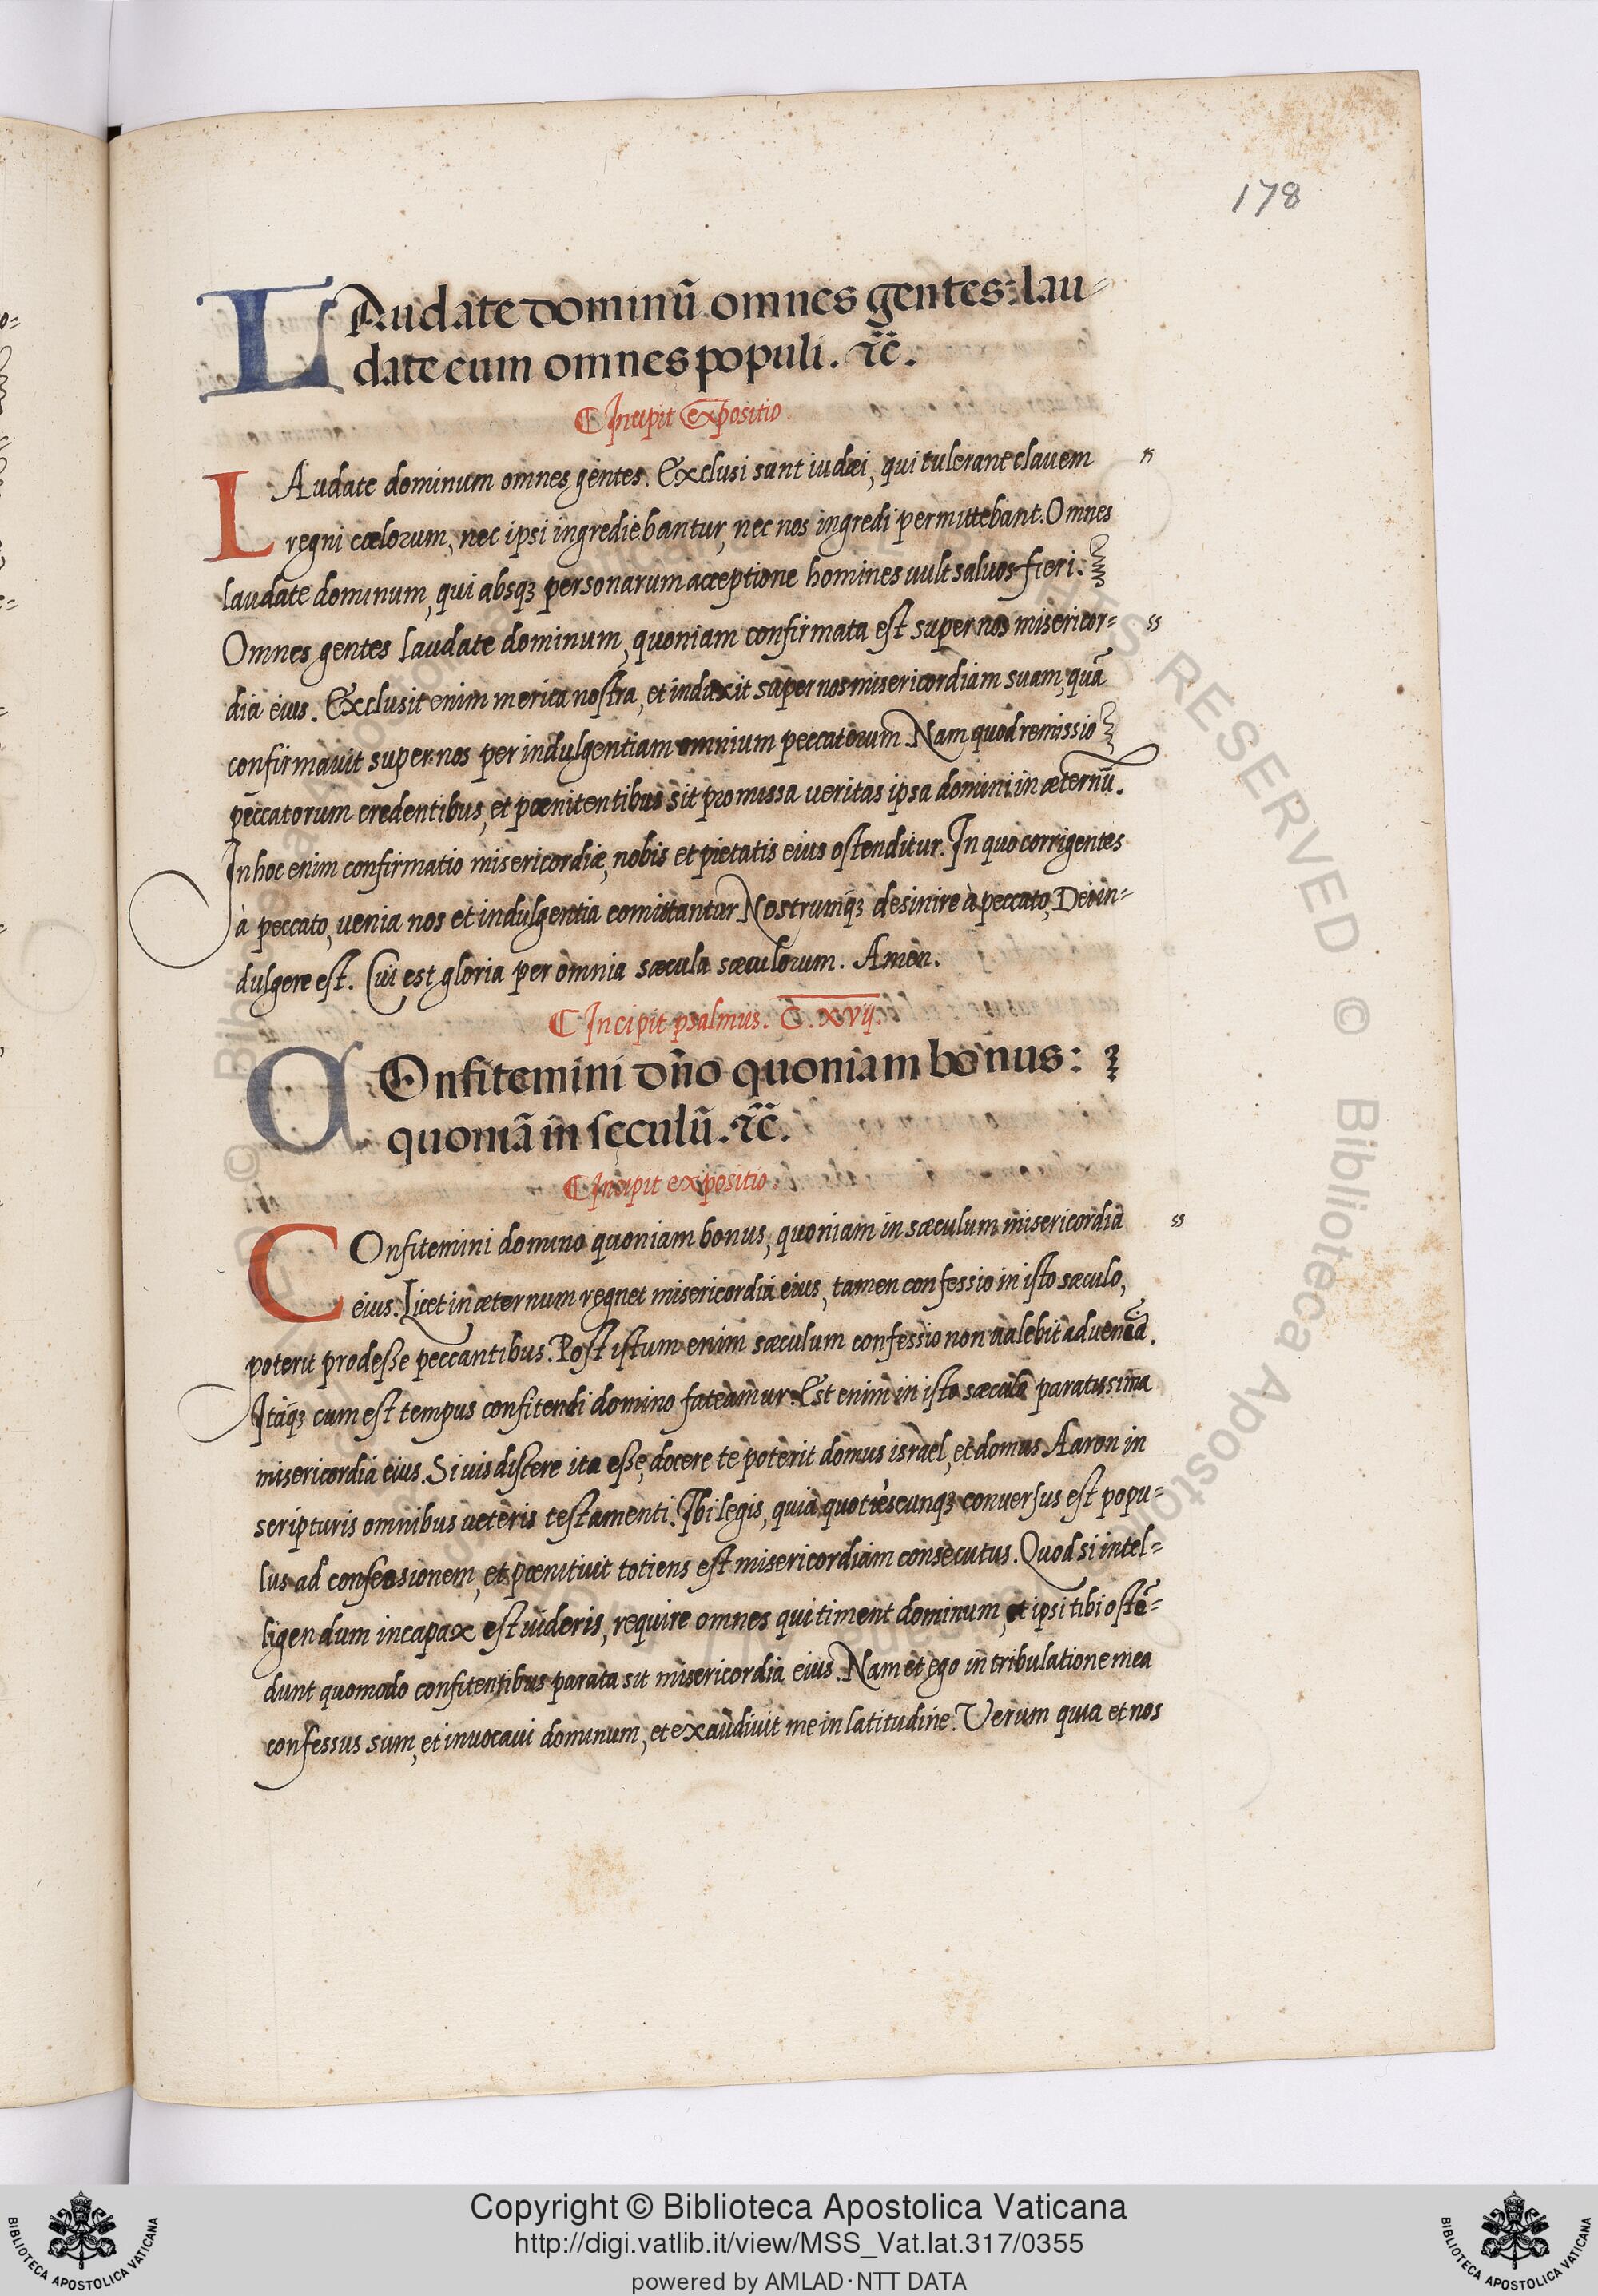 178
LAudate dominū omnes gentes: lau
date eum omnes populi. ⁊c̃.
Incipit expositio
LAudate dominum omnes gentes. Exclusi sunt iudæi, qui tulerant clavem
regni cœlorum, nec ipsi ingrediebantur, nec nos ingredi permittebant. Omnes
laudate dominum, qui absqꝫ personarum acceptione homines vult salvos fieri.
Omnes gentes laudate dominum, quoniam confirmata est super nos misericor=
dia eius. Exclusit enim merita nostra, et induxit super nos misericordiam suam, quā
confirmavit super nos per indulgentiam omnium peccatorum. Nam quod remissio
peccatorum credentibus, et pœnitentibus sit promissa veritas ipsa domini in æternū.
In hoc enim confirmatio misericordiæ, nobis et pietatis eius ostenditur. In quo corrigentes
à peccato, venia nos et indulgentia comittantur. Nostrumqꝫ desinire à peccato, Dei in=
dulgere est. Cui est gloria per omnia sæcula sæculorum. Amen.
Incipit psalmus. C. xvij.
COnfitemini dño quoniam bonus:
quoniā in sęculū. ⁊c̃.
Incipit expositio
COnfitemini domino quoniam bonus, quoniam in sæculum misericordia
eius. Licet in æternum regnet misericordia eius, tamen confessio in isto sæculo,
poterit prodesse peccantibus. Post istum enim sæculum confessio non valebit ad veniā.
Itaqꝫ cum est tempus confitendi domino fateamur. Est enim in isto sæculo paratissima
misericordia eius. Si vis discere ita esse, docere te poterit domus israel, et domus Aaron in
scripturis omnibus veteris testamenti. Ibi legis, quia quotiescunqꝫ conversus est popu=
lus ad confessionem, et pœnitivit totiens est misericordiam consecutus. Quod si intel=
ligendum incapax est videris, require omnes qui timent dominum, et ipsi tibi ostē=
dunt quomodo confitentibus parata sit misericordia eius. Nam et ego in tribulatione mea
confessus sum, et invocavi dominum, et exaudivit me in latitudine. Verum quia et nos
Copyright © Biblioteca Apostolica Vaticana
http://digi.vatlib.it/view/MSS_Vat.lat.317/0355
powered by AMLAD·NTT DATA
BIBLIOTECA APOSTOLICA VATICANA
BIBLIOTECA APOSTOLICA VATICANA